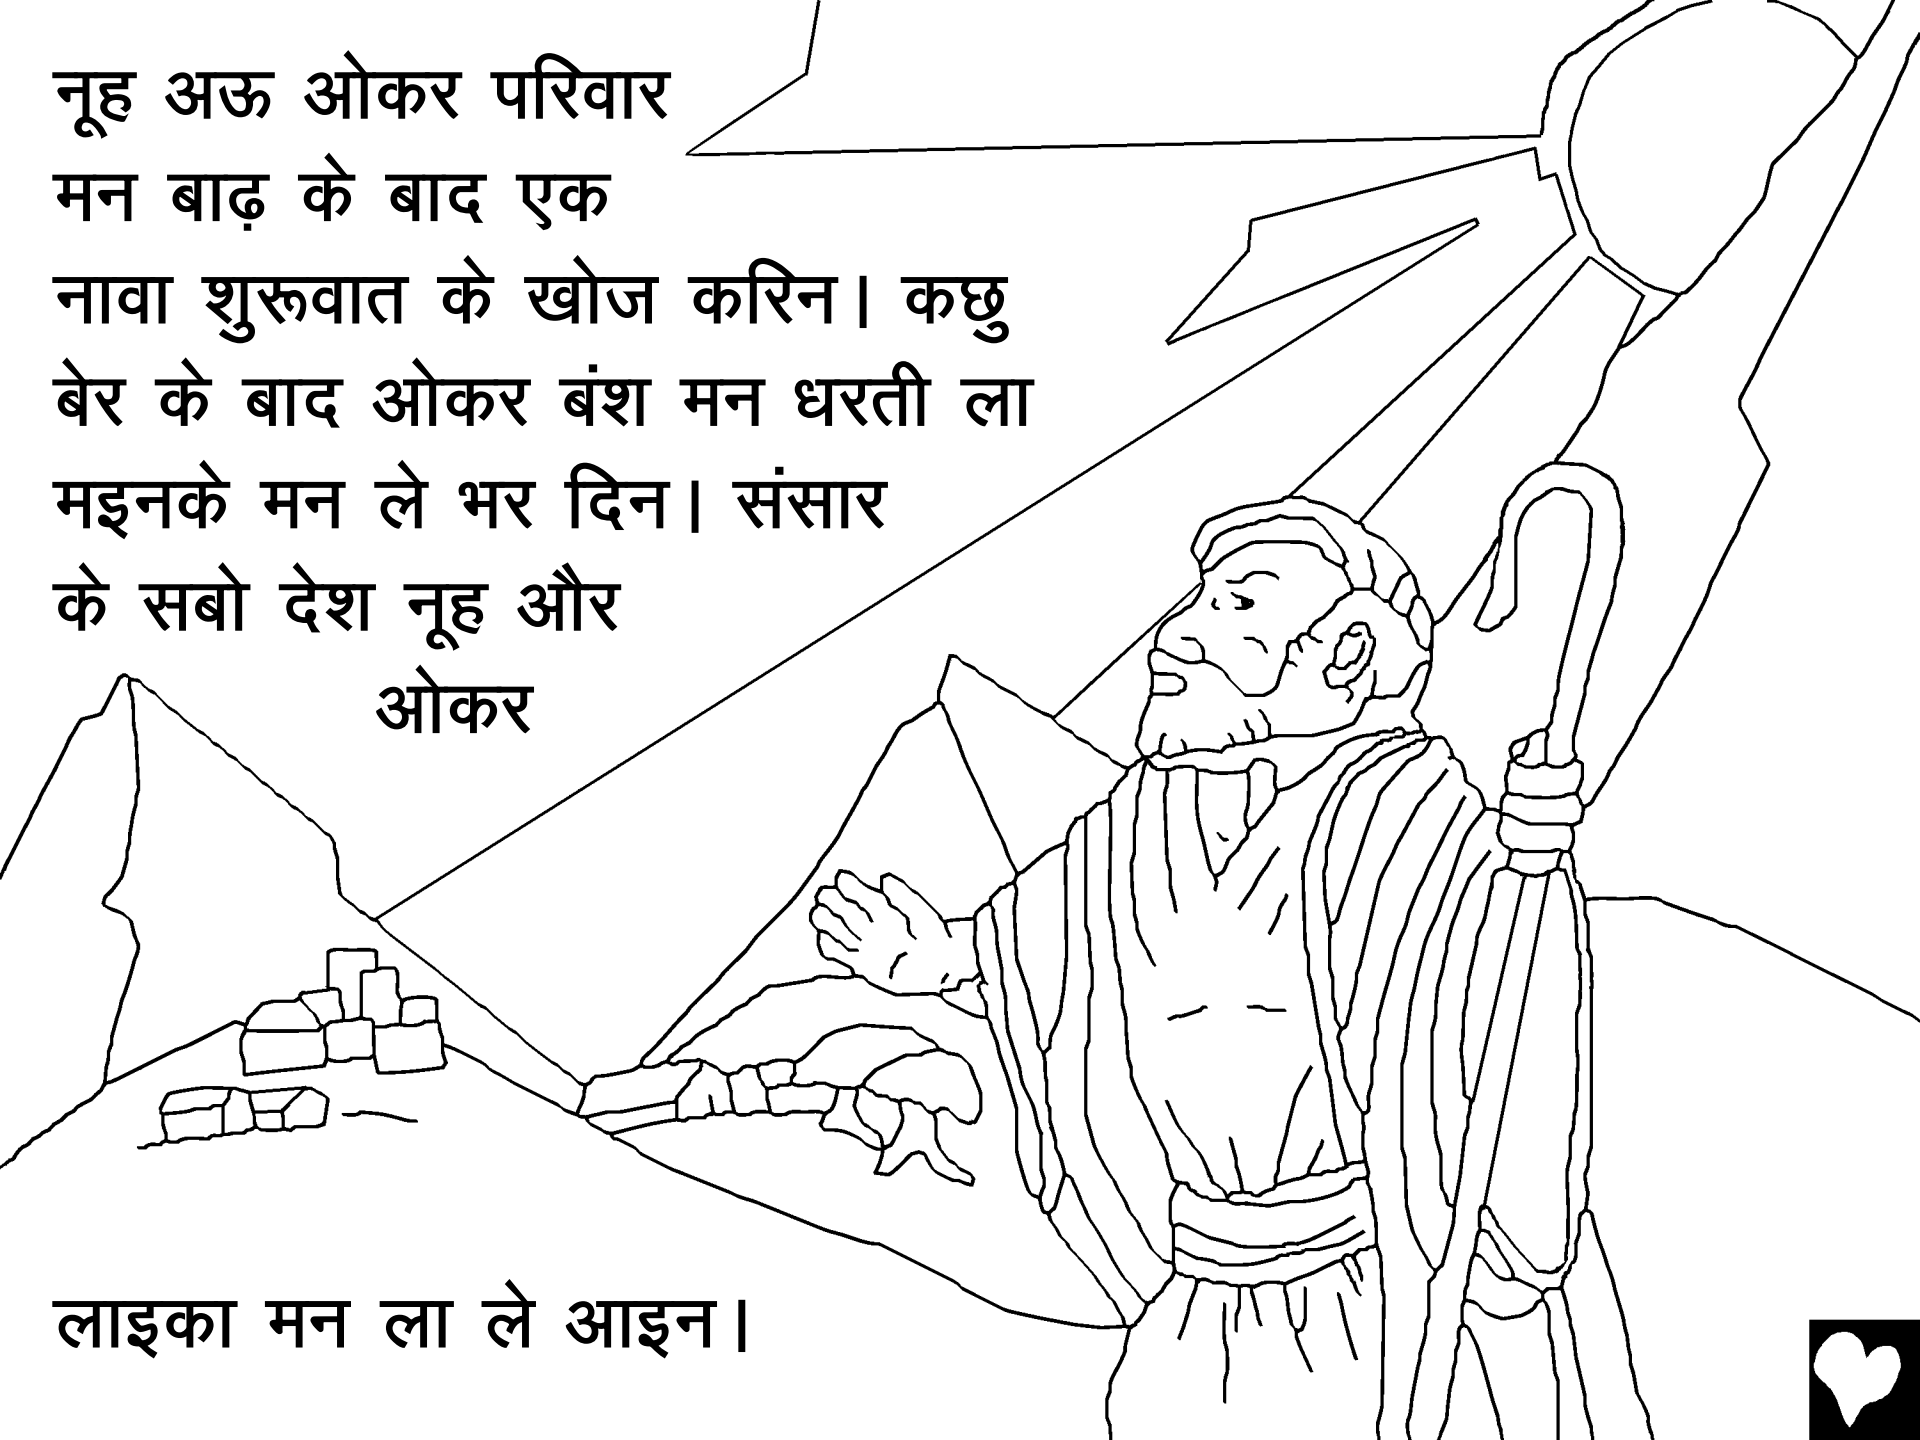 नूह अऊ ओकर परिवार
मन बाढ़ के बाद एक
नावा शुरूवात के खोज करिन। कछु
बेर के बाद ओकर बंश मन धरती ला
मइनके मन ले भर दिन। संसार
के सबो देश नूह और
ओकर
लाइका मन ला ले आइन।